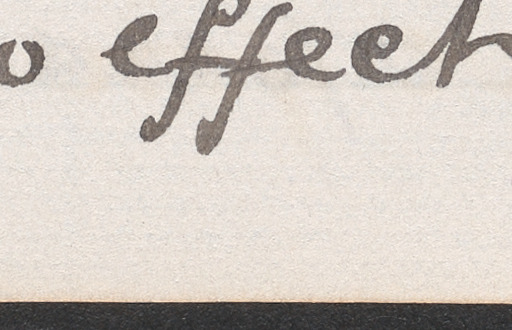 o effect